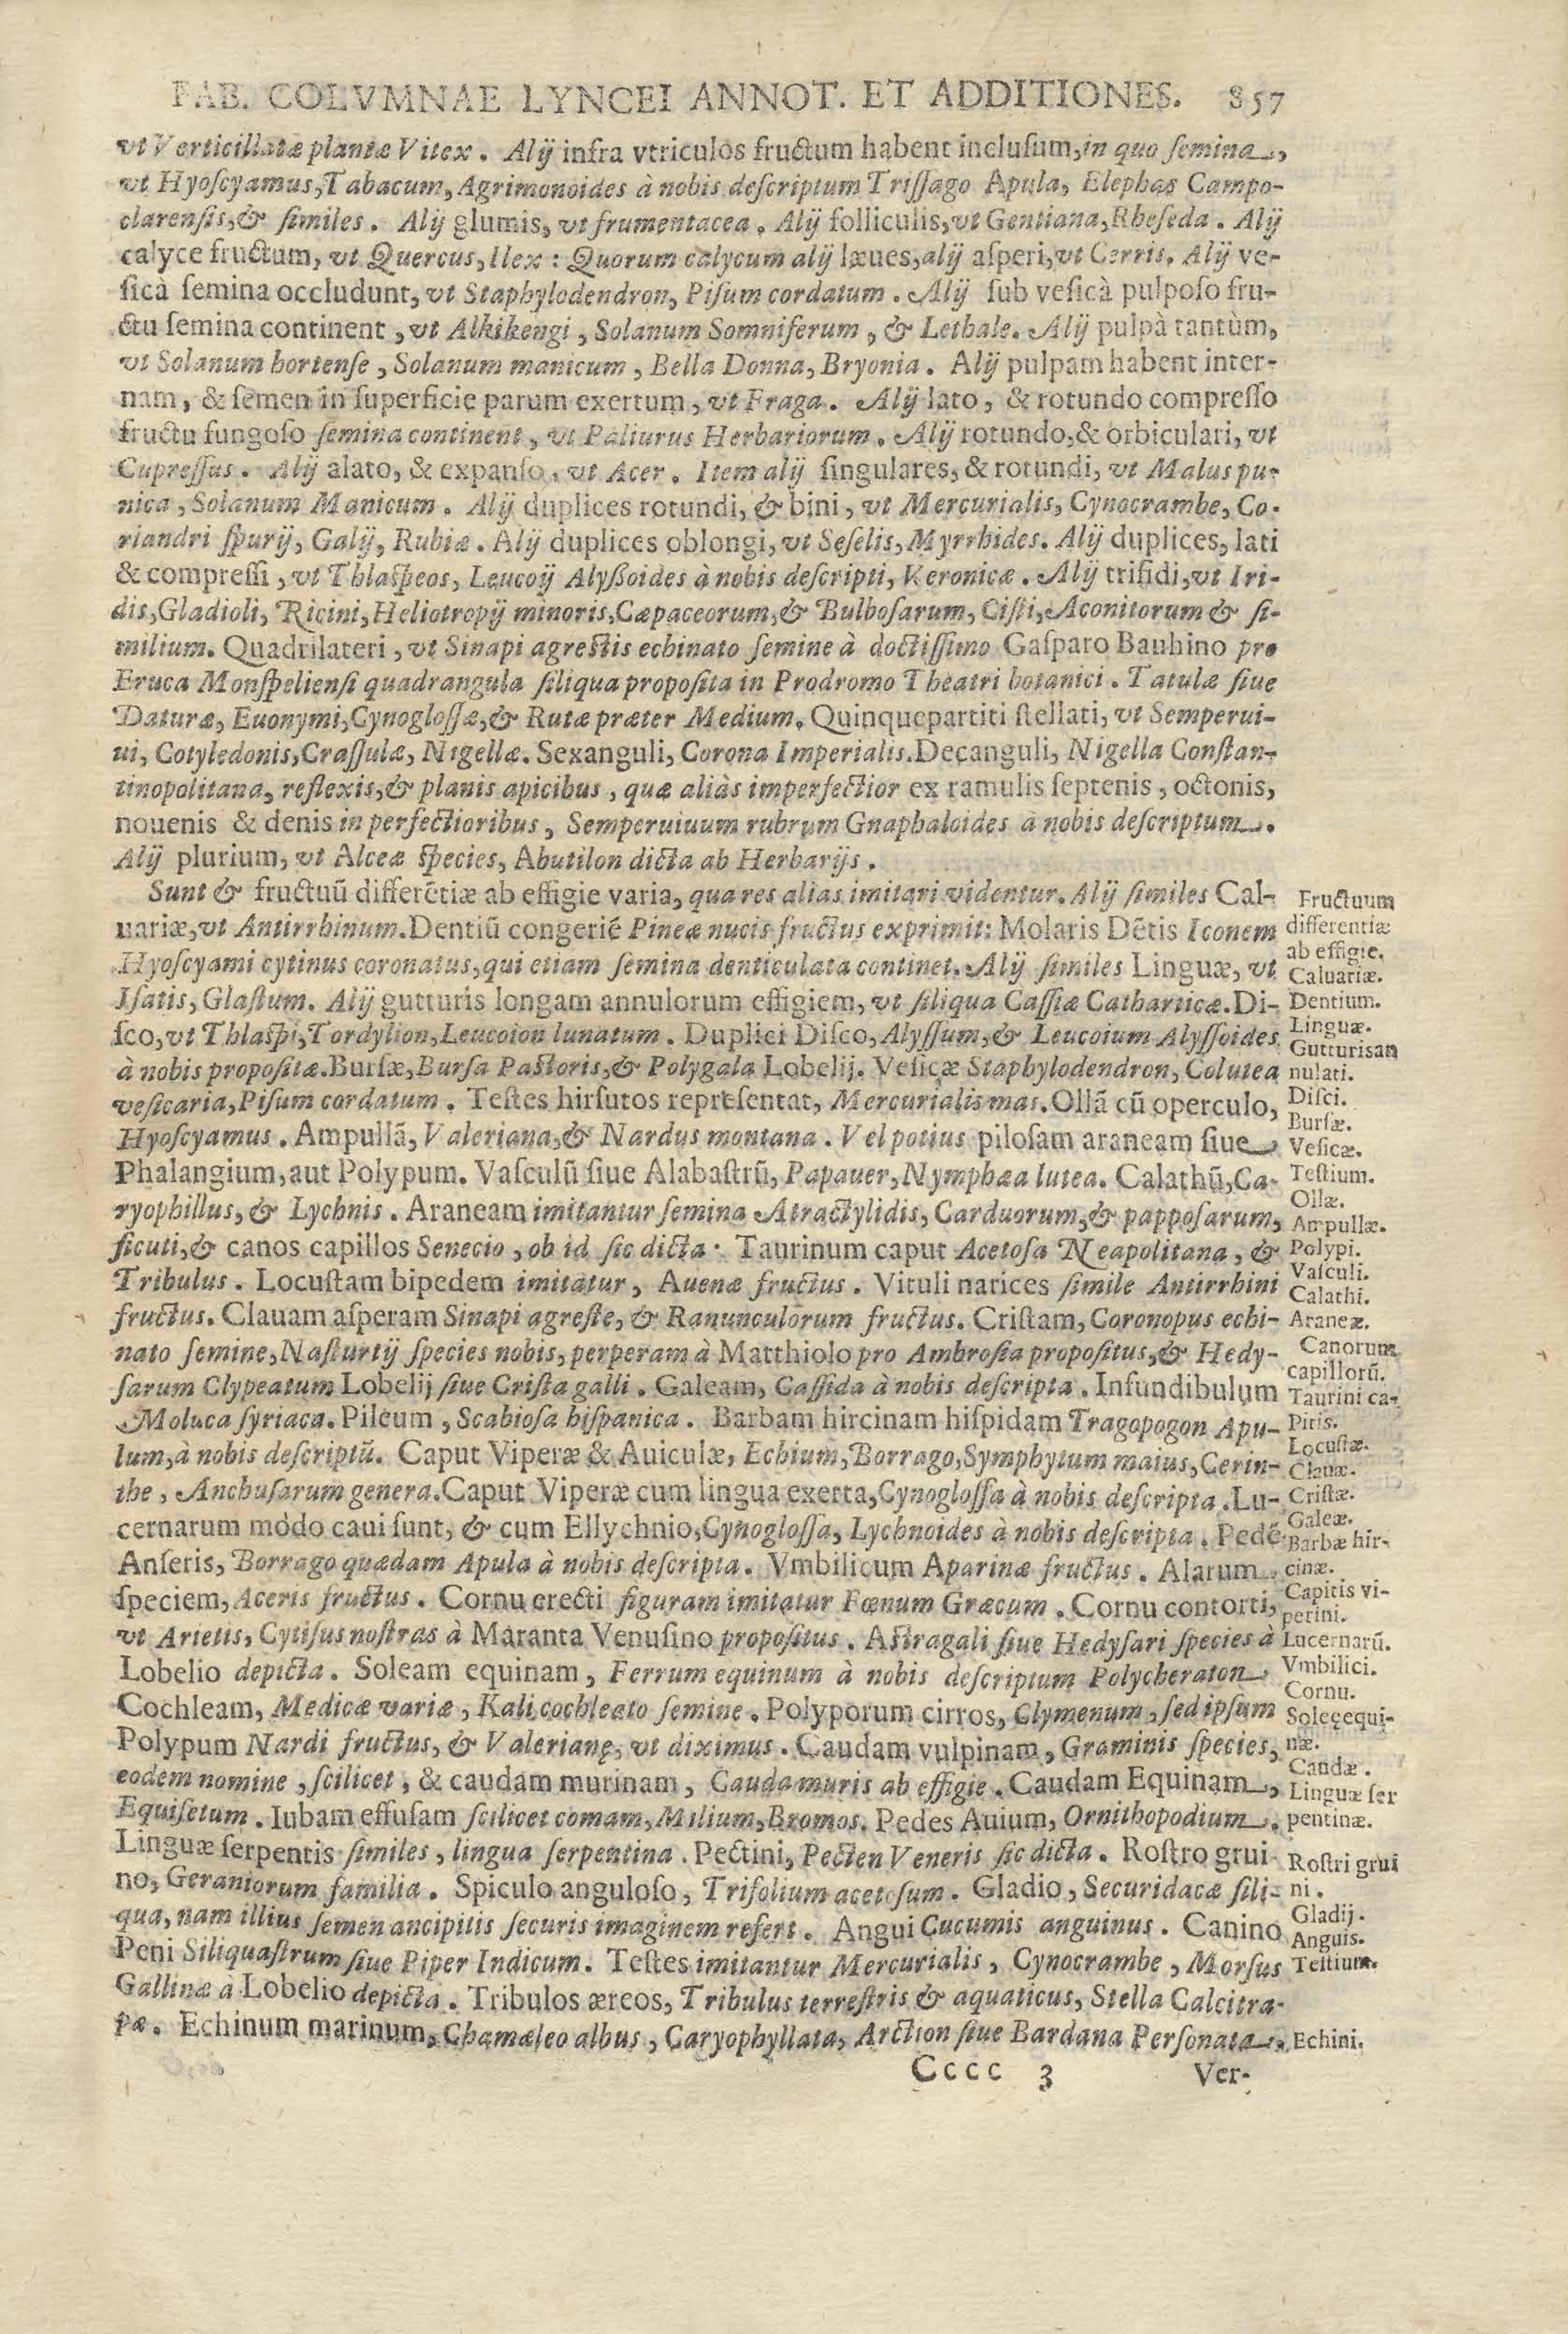 FAB. COLVMNAE LYNCEI ANNOT. ET ADDITIONES. 857
vt Verticillatæ plantæ Vitex. Alij infra vtriculos fructum habent inclusum, in quo semina,
vt Hyoscyamus, Tabacum, Agrimonoides à nobis descriptum Trissago Apula, Elephas Campo-
clarensis, & similes. Alij glumis, vt frumentacea. Alij folliculis, vt Gentiana, Rheseda. Alij
calyce fructum, vt Quercus, Ilex: Quorum calycum alij læues, alij asperi, vt Cerris. Alij ve-
sicà semina occludunt, vt Staphylodendron, Pisum cordatum. Alij sub vesicà pulposo fru-
ctu semina continent, vt Alkikengi, Solanum Somniferum, & Lethale. Alij pulpà tantùm,
vt Solanum hortense, Solanum manicum, Bella Donna, Bryonia. Alij pulpam habent inter-
nam, & semen in superficie parum exertum, vt Fraga. Alij lato, & rotundo compresso
fructu fungoso semina continent, vt Paliurus Herbariorum. Alij rotundo, & orbiculari, vt
Cupressus. Alij alato, & expanso, vt Acer. Item alij singulares, & rotundi, vt Malus pu-
nica, Solanum Manicum. Alij duplices rotundi, & bini, vt Mercurialis, Cynocrambe, Co-
riandri spurij, Galij, Rubiæ. Alij duplices oblongi, vt Seselis, Myrrhides. Alij duplices, lati
& compressi, vt Thlaspeos, Leucoij Alyßoides à nobis descripti, Veronicæ. Alij trifidi, vt Iri-
dis, Gladioli, Ricini, Heliotropij minoris, Cæpaceorum, & Bulbosarum, Cisti, Aconitorum & si-
milium. Quadrilateri, vt Sinapi agrestis echinato semine à doctissimo Gasparo Bauhino pro
Eruca Monspeliensi quadrangula siliqua proposita in Prodromo Theatri botanici. Tatulæ siue
Daturæ, Euonymi, Cynoglossæ, & Rutæ præter Medium. Quinquepartiti stellati, vt Semperui-
ui, Cotyledonis, Crassulæ, Nigellæ. Sexanguli, Corona Imperialis. Decanguli, Nigella Constan-
tinopolitana, reflexis, & planis apicibus, quæ aliàs imperfectior ex ramulis septenis, octonis,
nouenis & denis in perfectioribus, Semperuiuum rubrum Gnaphaloides à nobis descriptum.
Alij plurium, vt Alceæ species, Abutilon dicta ab Herbarijs.
Sunt & fructuũ differẽtiæ ab effigie varia, qua res alias imitari videntur. Alij similes Cal-
uariæ, vt Antirrhinum. Dentiũ congeriẽ Pineæ nucis fructus exprimit: Molaris Dẽtis Iconem
Hyoscyami cytinus coronatus, qui etiam semina denticulata continet. Alij similes Linguæ, vt
Isatis, Glastum. Alij gutturis longam annulorum effigiem, vt siliqua Cassiæ Catharticæ. Di-
sco, vt Thlaspi, Tordylion, Leucoion lunatum. Duplici Disco, Alyssum, & Leucoium Alyssoides
à nobis propositæ. Bursæ, Bursa Pastoris, & Polygala Lobelij. Vesicæ Staphylodendron, Colutea
vesicaria, Pisum cordatum. Testes hirsutos representat, Mercurialis mas. Ollã cũ operculo,
Hyoscyamus. Ampullã, Valeriana, & Nardus montana. Vel potius pilosam araneam siue
Phalangium, aut Polypum. Vasculũ siue Alabastrũ, Papauer, Nymphæa lutea. Calathũ, Ca-
ryophillus, & Lychnis. Araneam imitantur semina Atractylidis, Carduorum, & papposarum,
sicuti, & canos capillos Senecio, ob id sic dicta. Taurinum caput Acetosa Neapolitana, &
Tribulus. Locustam bipedem imitatur, Auenæ fructus. Vituli narices simile Antirrhini
fructus. Clauam asperam Sinapi agreste, & Ranunculorum fructus. Cristam, Coronopus echi-
nato semine, Nasturtij species nobis, perperam à Matthiolo pro Ambrosia propositus, & Hedy-
sarum Clypeatum Lobelij siue Crista galli. Galeam, Cassida à nobis descripta. Infundibulum
Moluca syriaca. Pileum, Scabiosa hispanica. Barbam hircinam hispidam Tragopogon Apu-
lum, à nobis descriptũ. Caput Viperæ & Auiculæ, Echium, Borrago, Symphytum maius, Cerin-
the, Anchusarum genera. Caput Viperæ cum lingua exerta, Cynoglossa à nobis descripta. Lu-
cernarum modo caui sunt, & cum Ellychnio, Cynoglossa, Lychnoides à nobis descripta. Pedẽ
Anseris, Borrago quædam Apula à nobis descripta. Vmbilicum Aparinæ fructus. Alarum
speciem, Aceris fructus. Cornu erecti figuram imitatur Fœnum Græcum. Cornu contorti,
vt Arietis, Cytisus nostras à Maranta Venusino propositus. Astragali siue Hedysari species à
Lobelio depicta. Soleam equinam, Ferrum equinum à nobis descriptum Polycheraton.
Cochleam, Medicæ variæ, Kali cochleato semine. Polyporum cirros, Clymenum, sed ipsum
Polypum Nardi fructus, & Valerianę, vt diximus. Caudam vulpinam, Graminis species,
eodem nomine, scilicet, & caudam murinam, Cauda muris ab effigie. Caudam Equinam,
Equisetum. Iubam effusam scilicet comam, Milium, Bromos. Pedes Auium, Ornithopodium.
Linguæ serpentis similes, lingua serpentina. Pectini, Pecten Veneris sic dicta. Rostro grui-
no, Geraniorum familia. Spiculo anguloso, Trifolium acetosum. Gladio, Securidacæ sili-
qua, nam illius semen ancipitis securis imaginem refert. Angui Cucumis anguinus. Canino
Peni Siliquastrum siue Piper Indicum. Testes imitantur Mercurialis, Cynocrambe, Morsus
Gallinæ à Lobelio depicta. Tribulos æreos, Tribulus terrestris & aquaticus, Stella Calcitra-
pæ. Echinum marinum, Chamæleo albus, Caryophyllata, Arction siue Bardana Personata.
Cccc 3 Ver-
Fructuum
differentiæ
ab effigie.
Caluariæ.
Dentium.
Linguæ.
Gutturis an
nulati.
Disci.
Bursæ.
Vesicæ.
Testium.
Ollæ.
Ampullæ.
Polypi.
Vasculi.
Calathi.
Araneæ.
Canorum
capillorũ.
Taurini ca-
pitis.
Locustæ.
Clauæ.
Cristæ.
Galeæ.
Barbæ hir-
cinæ.
Capitis vi-
perini.
Lucernarũ.
Vmbilici.
Cornu.
Soleę equi-
næ.
Caudæ.
Linguæ ser
pentinæ.
Rostri grui
ni.
Gladij.
Anguis.
Testium.
Echini.